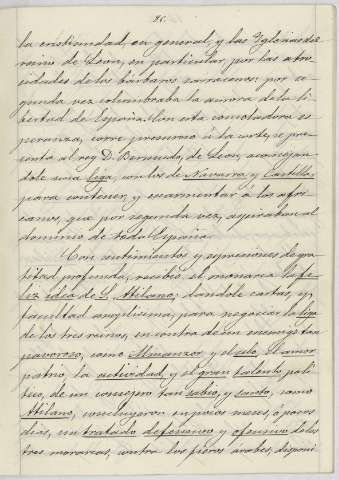 26.
la cristiandad, en general, y las Iglesias del
reino de Leon, en particular, por las atro-
cidades de los bárbaros sarracenos; por se-
gunda vez columbraba la aurora de la li-
bertad de España. Con esta consoladora es-
peranza, corre presuroso á la corte, se pre-
senta al rey D. Bermudo, de Leon, aconseján-
dole una Liga, con los de Navarra, y Castilla,
para contener, y escarmentar á los afri-
canos, que por segunda vez, aspiraban al
dominio de toda España.
Con sentimientos y espresiones de gra-
titud profunda, recibió, el monarca la fe-
liz idea de S. Atilano; dandole cartas, y,
facultad amplisima, para negociar la liga
de los tres reinos, en contra de un enemigo tan
pavoroso, como Almanzor y el celo, el amor
patrio, la actividad, y el gran talento polí-
tico, de un consejero tan sabio, y santo, como
Atilano, concluyeron en pocos meses, ó pocos
dias, un tratado defensivo y ofensivo de los
tres monarcas, contra los fieros arabes, disponi-